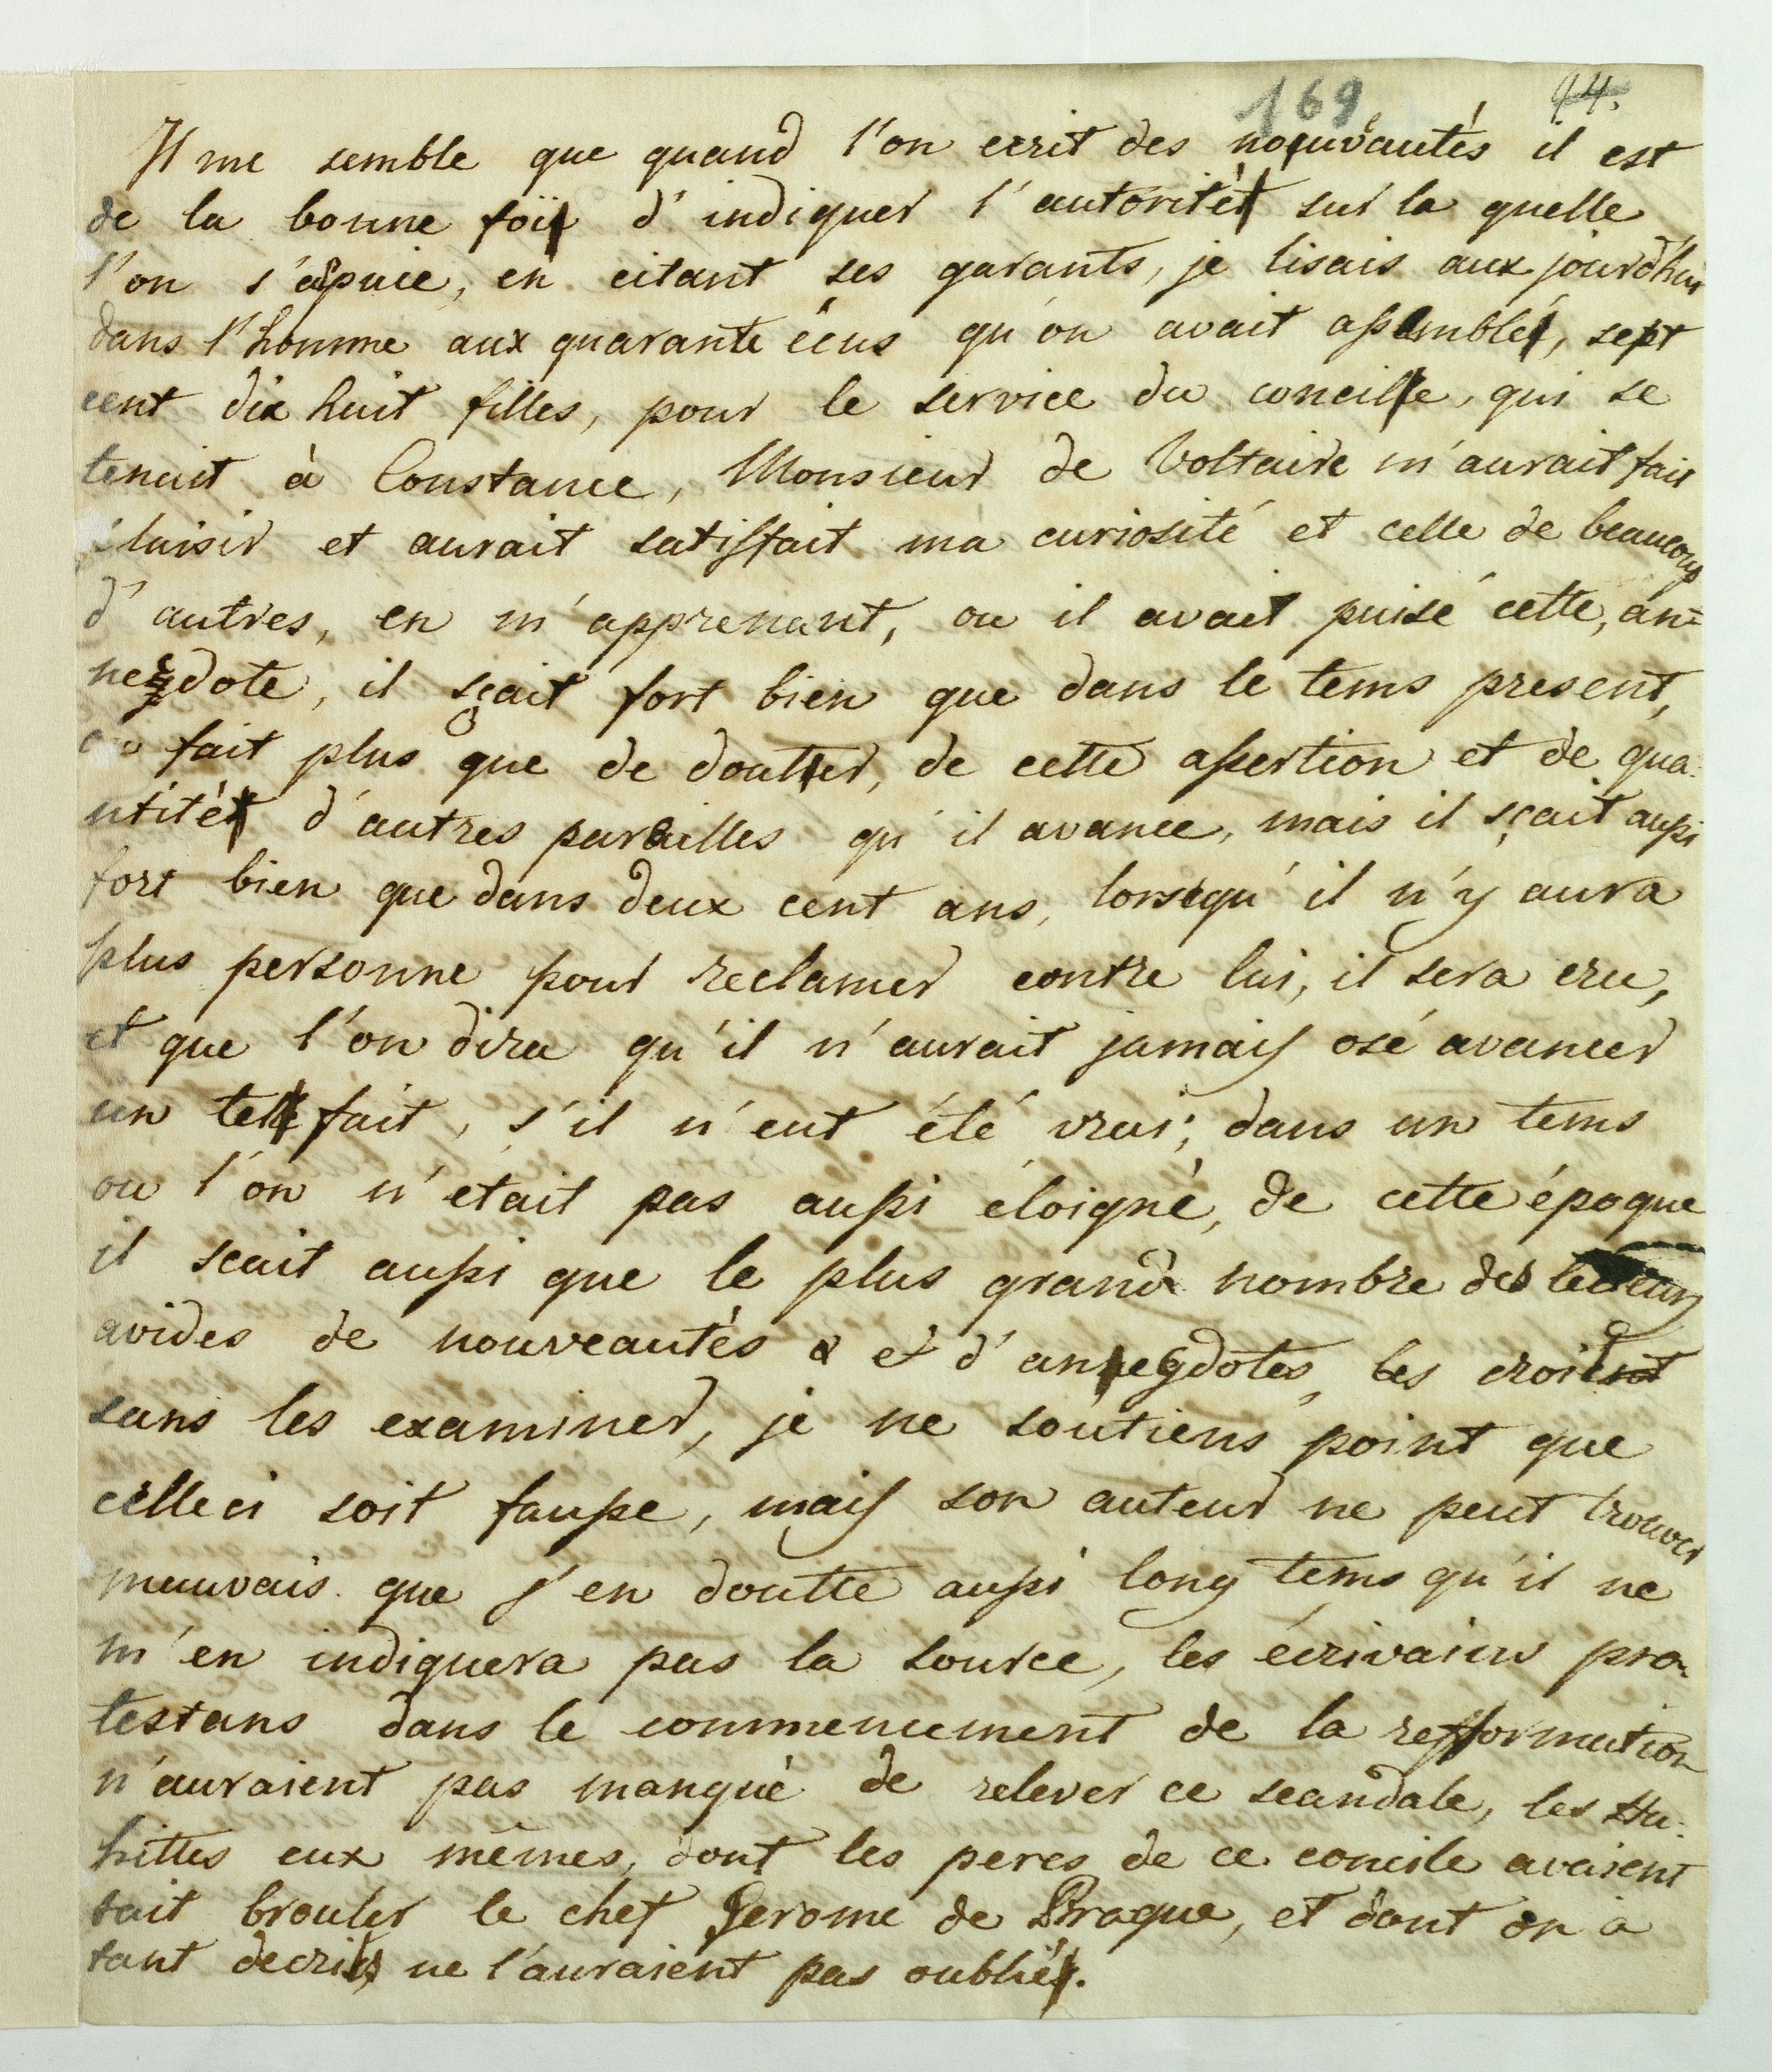 169 94.
Il me semble que quand l'on ecrit des nouvautés il est
de la bonne foi d'indiquer l'autorité sur la quelle
l'on s'apuie, en citant ses garants, je lisais aux jourd'hui
dans l'homme aux quarante écus qu'on avait assemblé, sept
cent dix huit filles, pour le service du concile, qui se
tenait à Constance, Monsieur de Voltaire m'aurait fait
plaisir et aurait satisfait ma curiosité et celle de beaucoup
d'autres, en m'apprenant, ou il avait puisé cette, an=
necdote, il sçait fort bien que dans le tems present,
on fait plus que de douter, de cette assertion et de qua-
ntité d'autres pareilles qu'il avance, mais il sçait aussi
fort bien que dans deux cent ans, lorsequ'il n'y aura
plus personne pour reclamer contre lui, il sera cru,
et que l'on dira qu'il n'aurait jamais osé avancer
un tel fait, s'il n'eut été vrai; dans un tems
ou l'on n'était pas aussi éloigné, de cette époque
il scait aussi que le plus grand nombre des lecteurs
avides de nouveautés & et d'anegdotes, les croid
sans les examiner, je ne soutiens point que
celle ci soit fausse, mais son auteur ne peut trouver
mauvais que j'en doutte aussi long tems qu'il ne
m'en indiquera pas la source, les écrivains pro-
testans dans le commencement de la reformation
n'auraient pas manqué de relever ce scandale, les Hu-
ssittes eux mêmes, dont les peres de ce concile avaient
fait brouler le chef Jerome de Prague, et dont on a
tant decrit, ne l'auraient pas oublié.